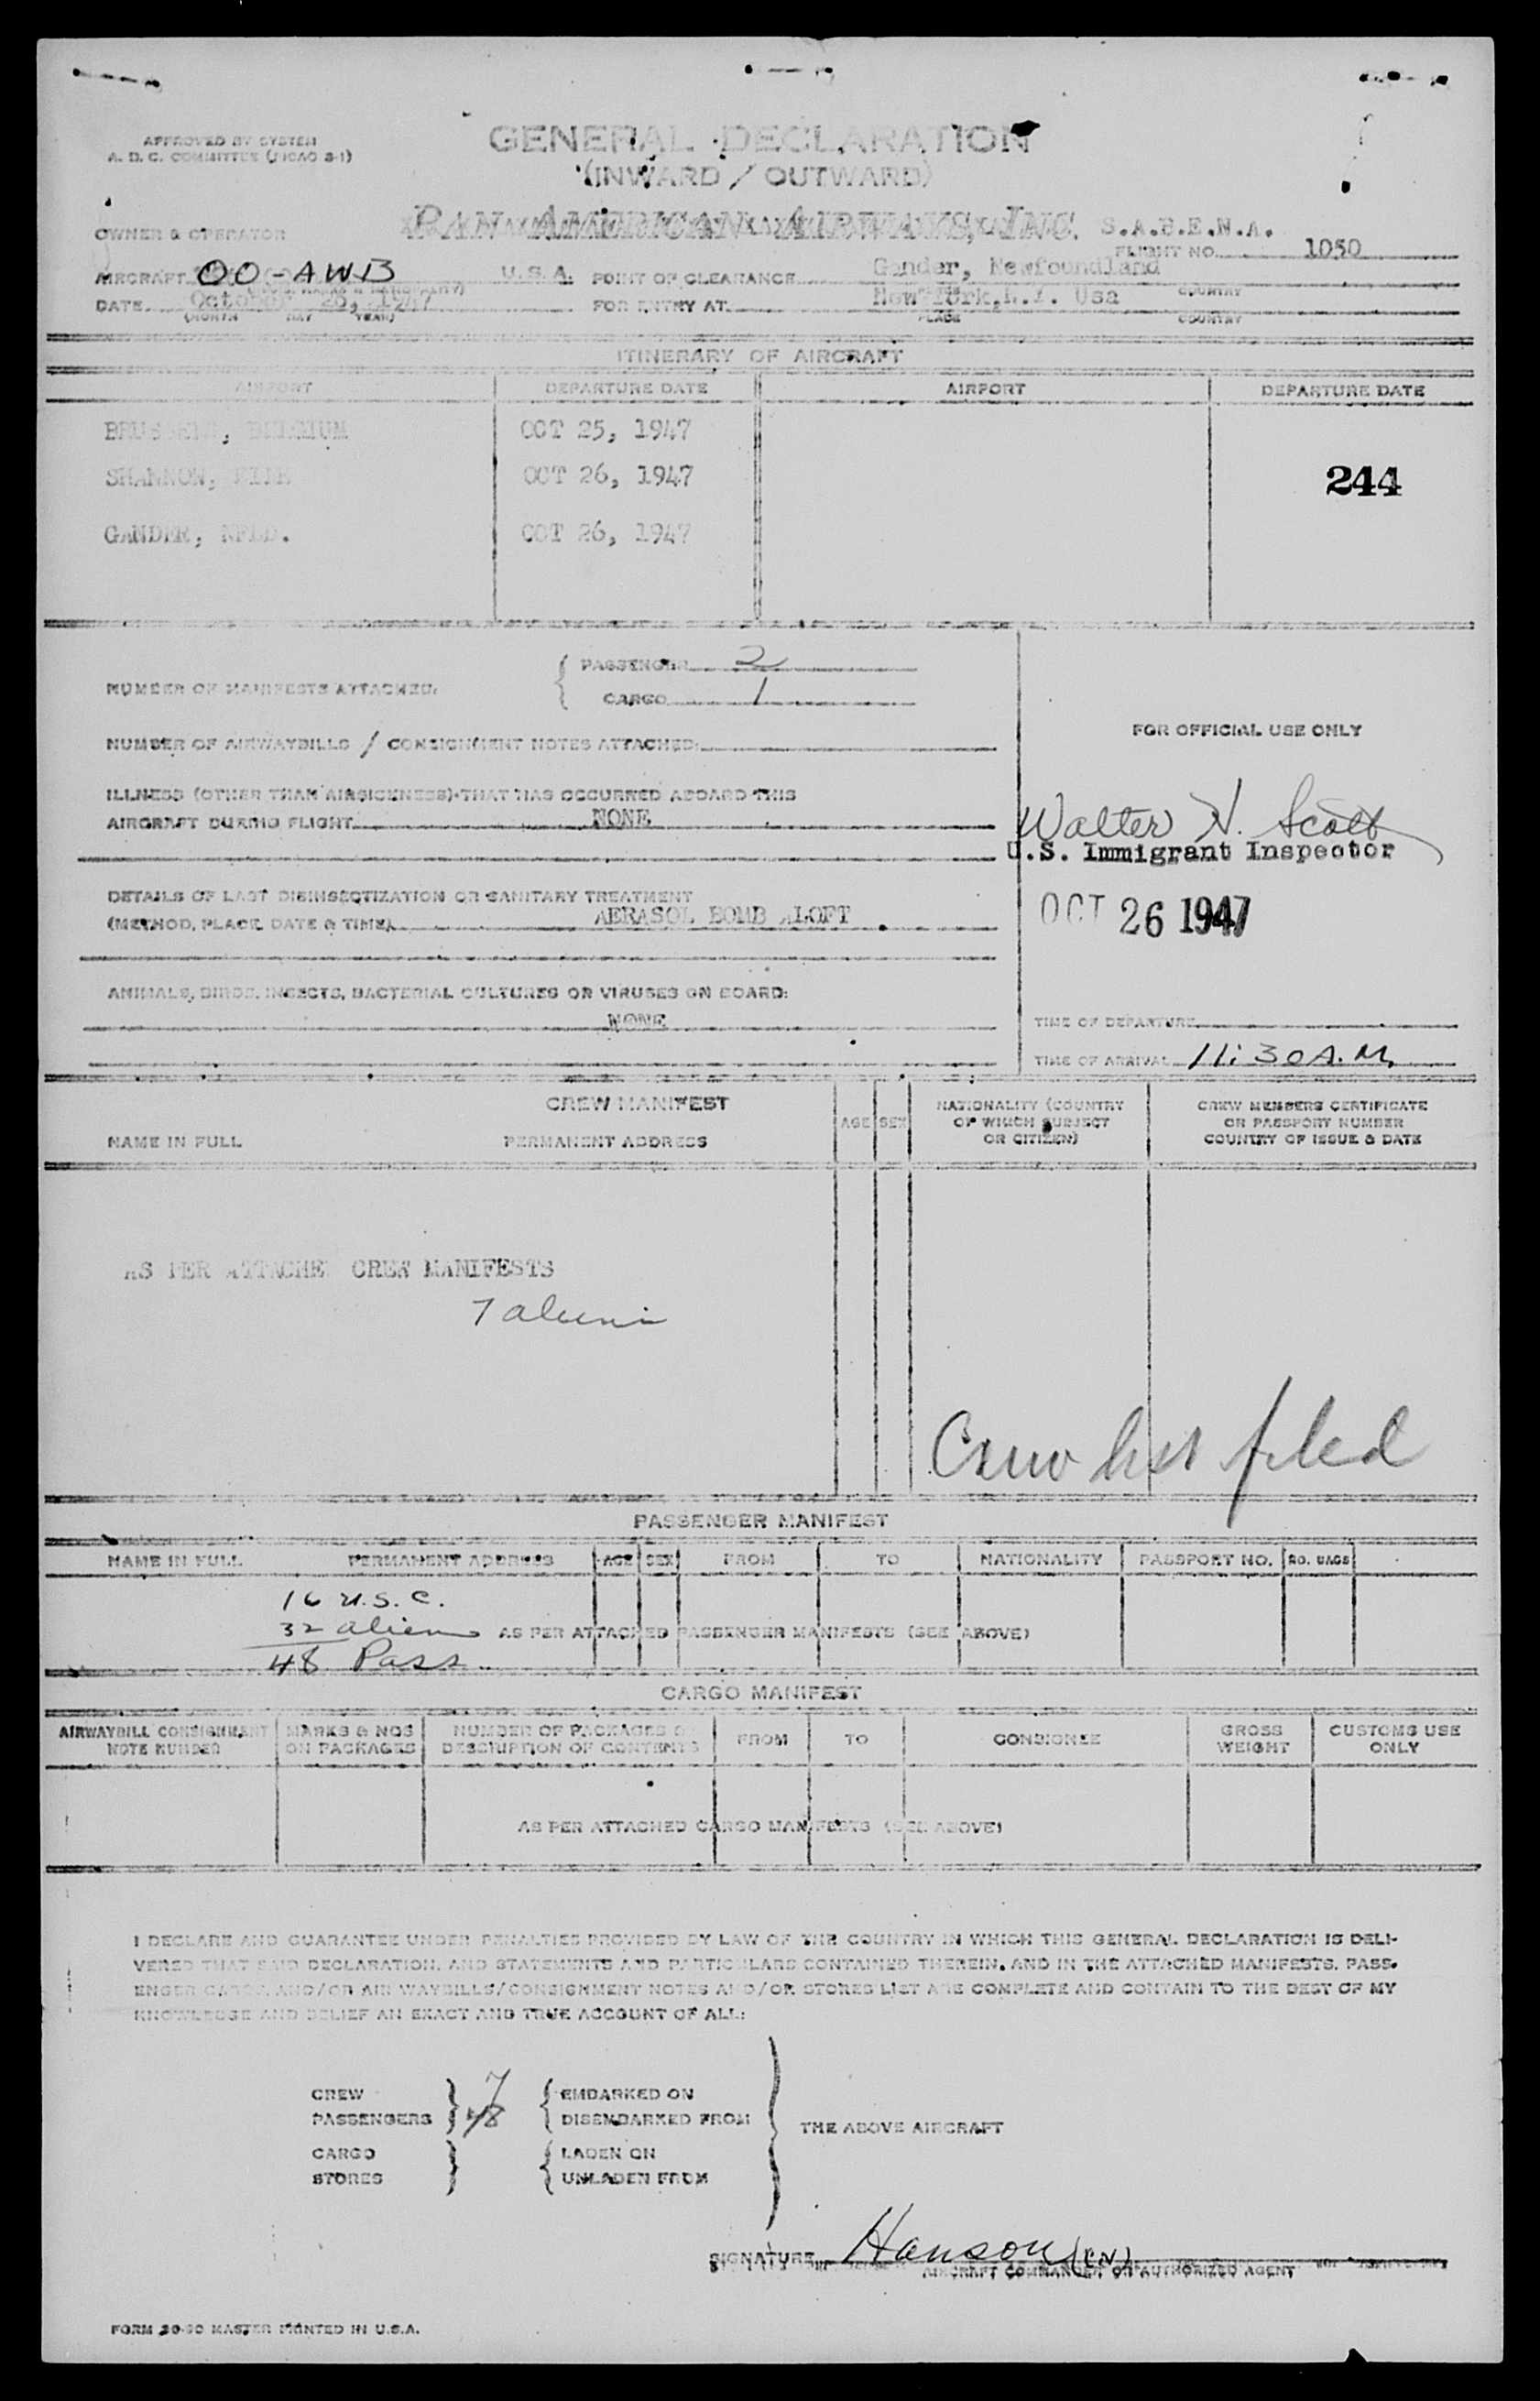 APPROVED BY SYSTEM
A. D. C. COMMITTEE (PICAO 3-1)
GENERAL DECLARATION
(INWARD / OUTWARD)
OWNER & OPERATOR PAN AMERICAN AIRWAYS, INC. S.A.B.E.N.A.
FLIGHT NO. 1050
AIRCRAFT OO-AWB U.S.A. POINT OF CLEARANCE Gander, Newfoundland
COUNTRY
DATE October 26, 1947 FOR ENTRY AT New York, N.Y. Usa
(MONTH DAY YEAR) PLACE COUNTRY
ITINERARY OF AIRCRAFT
AIRPORT DEPARTURE DATE AIRPORT DEPARTURE DATE
BRUSSELS, BELGIUM OCT 25, 1947
SHANNON, EIRE OCT 26, 1947 244
GANDER, NFLD. OCT 26, 1947
NUMBER OF MANIFESTS ATTACHED: { PASSENGER 2
CARGO 1
FOR OFFICIAL USE ONLY
NUMBER OF AIRWAYBILLS / CONSIGNMENT NOTES ATTACHED:
ILLNESS (OTHER THAN AIRSICKNESS) THAT HAS OCCURRED ABOARD THIS
AIRCRAFT DURING FLIGHT NONE
Walter H. Scott
U.S. Immigrant Inspector
DETAILS OF LAST DISINSECTIZATION OR SANITARY TREATMENT
(METHOD, PLACE, DATE & TIME) AERASOL BOMB ALOFT
OCT 26 1947
ANIMALS, BIRDS, INSECTS, BACTERIAL CULTURES OR VIRUSES ON BOARD:
NONE
TIME OF DEPARTURE
TIME OF ARRIVAL 11:30 A.M.
CREW MANIFEST
NAME IN FULL PERMANENT ADDRESS AGE SEX NATIONALITY (COUNTRY OF WHICH SUBJECT OR CITIZEN) CREW MEMBERS CERTIFICATE OR PASSPORT NUMBER COUNTRY OF ISSUE & DATE
AS PER ATTACHED CREW MANIFESTS
7 aliens
Crew list filed
PASSENGER MANIFEST
NAME IN FULL PERMANENT ADDRESS AGE SEX FROM TO NATIONALITY PASSPORT NO. NO. BAGS
16 U.S.C.
32 aliens AS PER ATTACHED PASSENGER MANIFESTS (SEE ABOVE)
48 Pass.
CARGO MANIFEST
AIRWAYBILL CONSIGNMENT NOTE NUMBER MARKS & NOS ON PACKAGES NUMBER OF PACKAGES & DESCRIPTION OF CONTENTS FROM TO CONSIGNEE GROSS WEIGHT CUSTOMS USE ONLY
AS PER ATTACHED CARGO MANIFESTS (SEE ABOVE)
I DECLARE AND GUARANTEE UNDER PENALTIES PROVIDED BY LAW OF THE COUNTRY IN WHICH THIS GENERAL DECLARATION IS DELI-
VERED THAT SAID DECLARATION, AND STATEMENTS AND PARTICULARS CONTAINED THEREIN, AND IN THE ATTACHED MANIFESTS, PASS-
ENGER CARGO AND/OR AIR WAYBILLS/CONSIGNMENT NOTES AND/OR STORES LIST ARE COMPLETE AND CONTAIN TO THE BEST OF MY
KNOWLEDGE AND BELIEF AN EXACT AND TRUE ACCOUNT OF ALL:
CREW } 7 { EMBARKED ON
PASSENGERS } 48 { DISEMBARKED FROM
THE ABOVE AIRCRAFT
CARGO } { LADEN ON
STORES } { UNLADEN FROM
SIGNATURE Hanson
AIRCRAFT COMMANDER OR AUTHORIZED AGENT
FORM 30-90 MASTER PRINTED IN U.S.A.